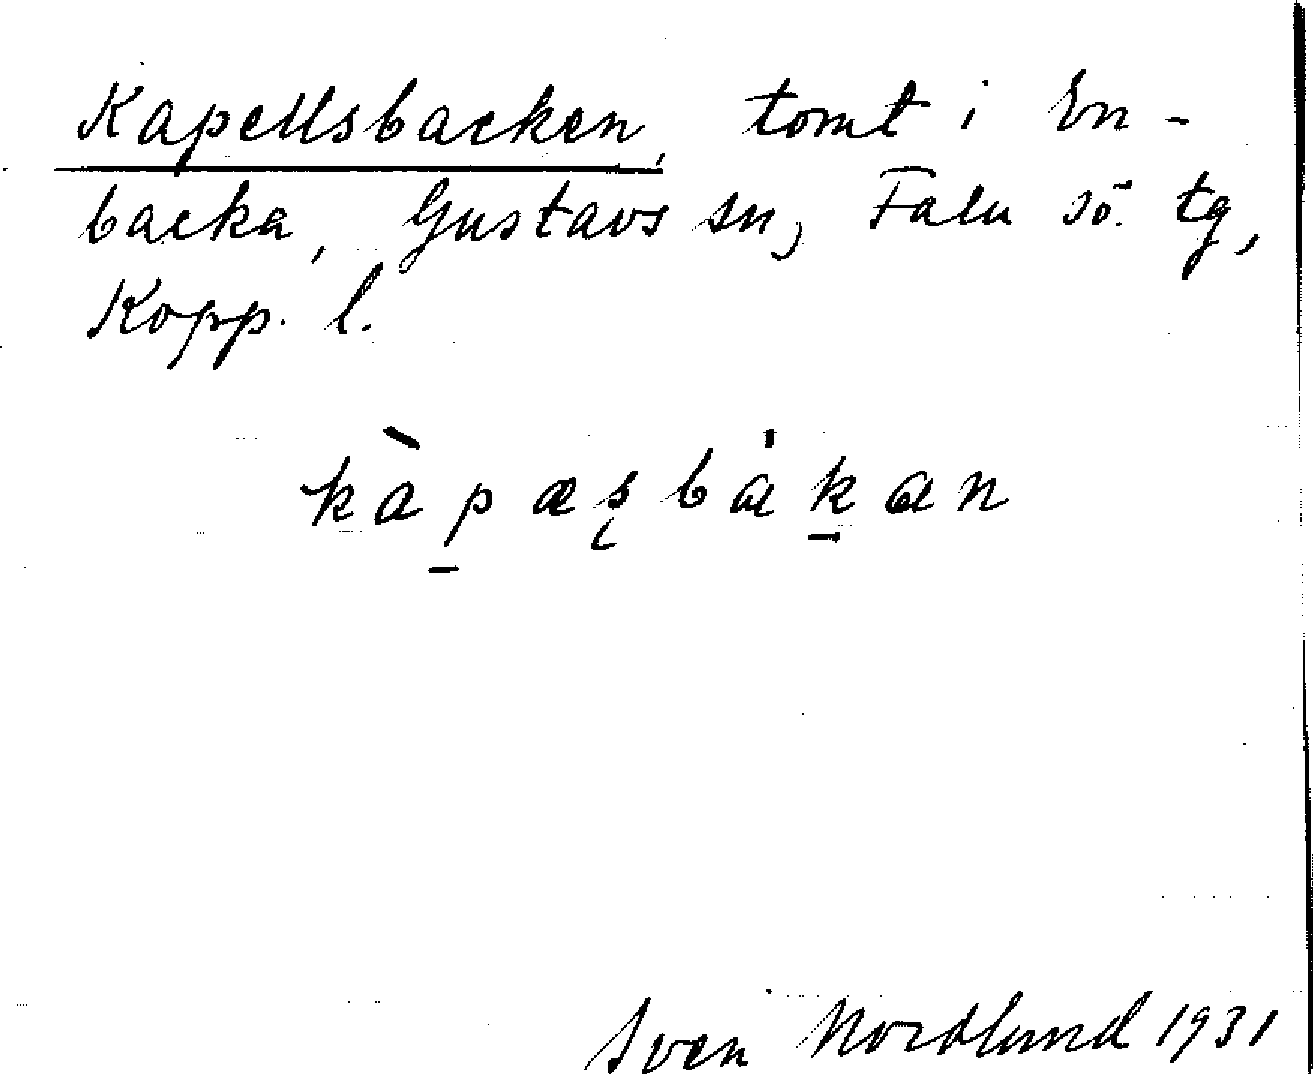 Kapellsbacken, tomt i En-
backa, Gustavs sn, Falu sö. tg,
Kopp. l.
kàpæʂbákan
Sven Nordlund 1931